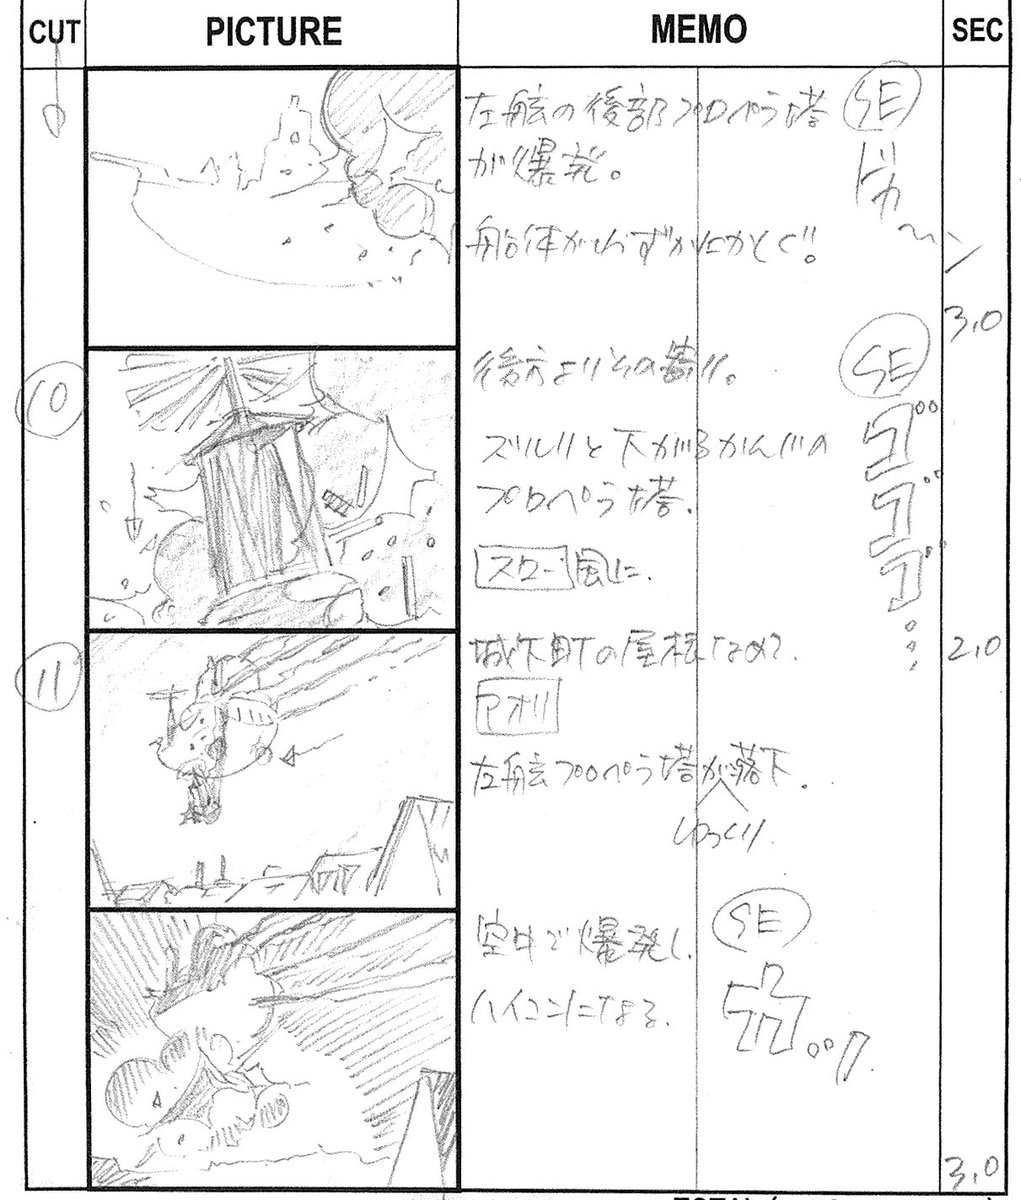 CUT PICTURE MEMO SEC
左舷の後部プロペラ塔
が爆発。
SE
ドカ〜ン
船体がわずかにかしぐ。
3.0
10
後方よりその
SE
ズルリと下がるかんじの
プロペラ塔.
スロー風に.
ゴゴゴ…
2.0
11
城下町の屋根なめ.
アオリ
左舷プロペラ塔が落下.
ゆっくり.
空中で爆発し.
SE
ハイコンになる.
カッ
3.0